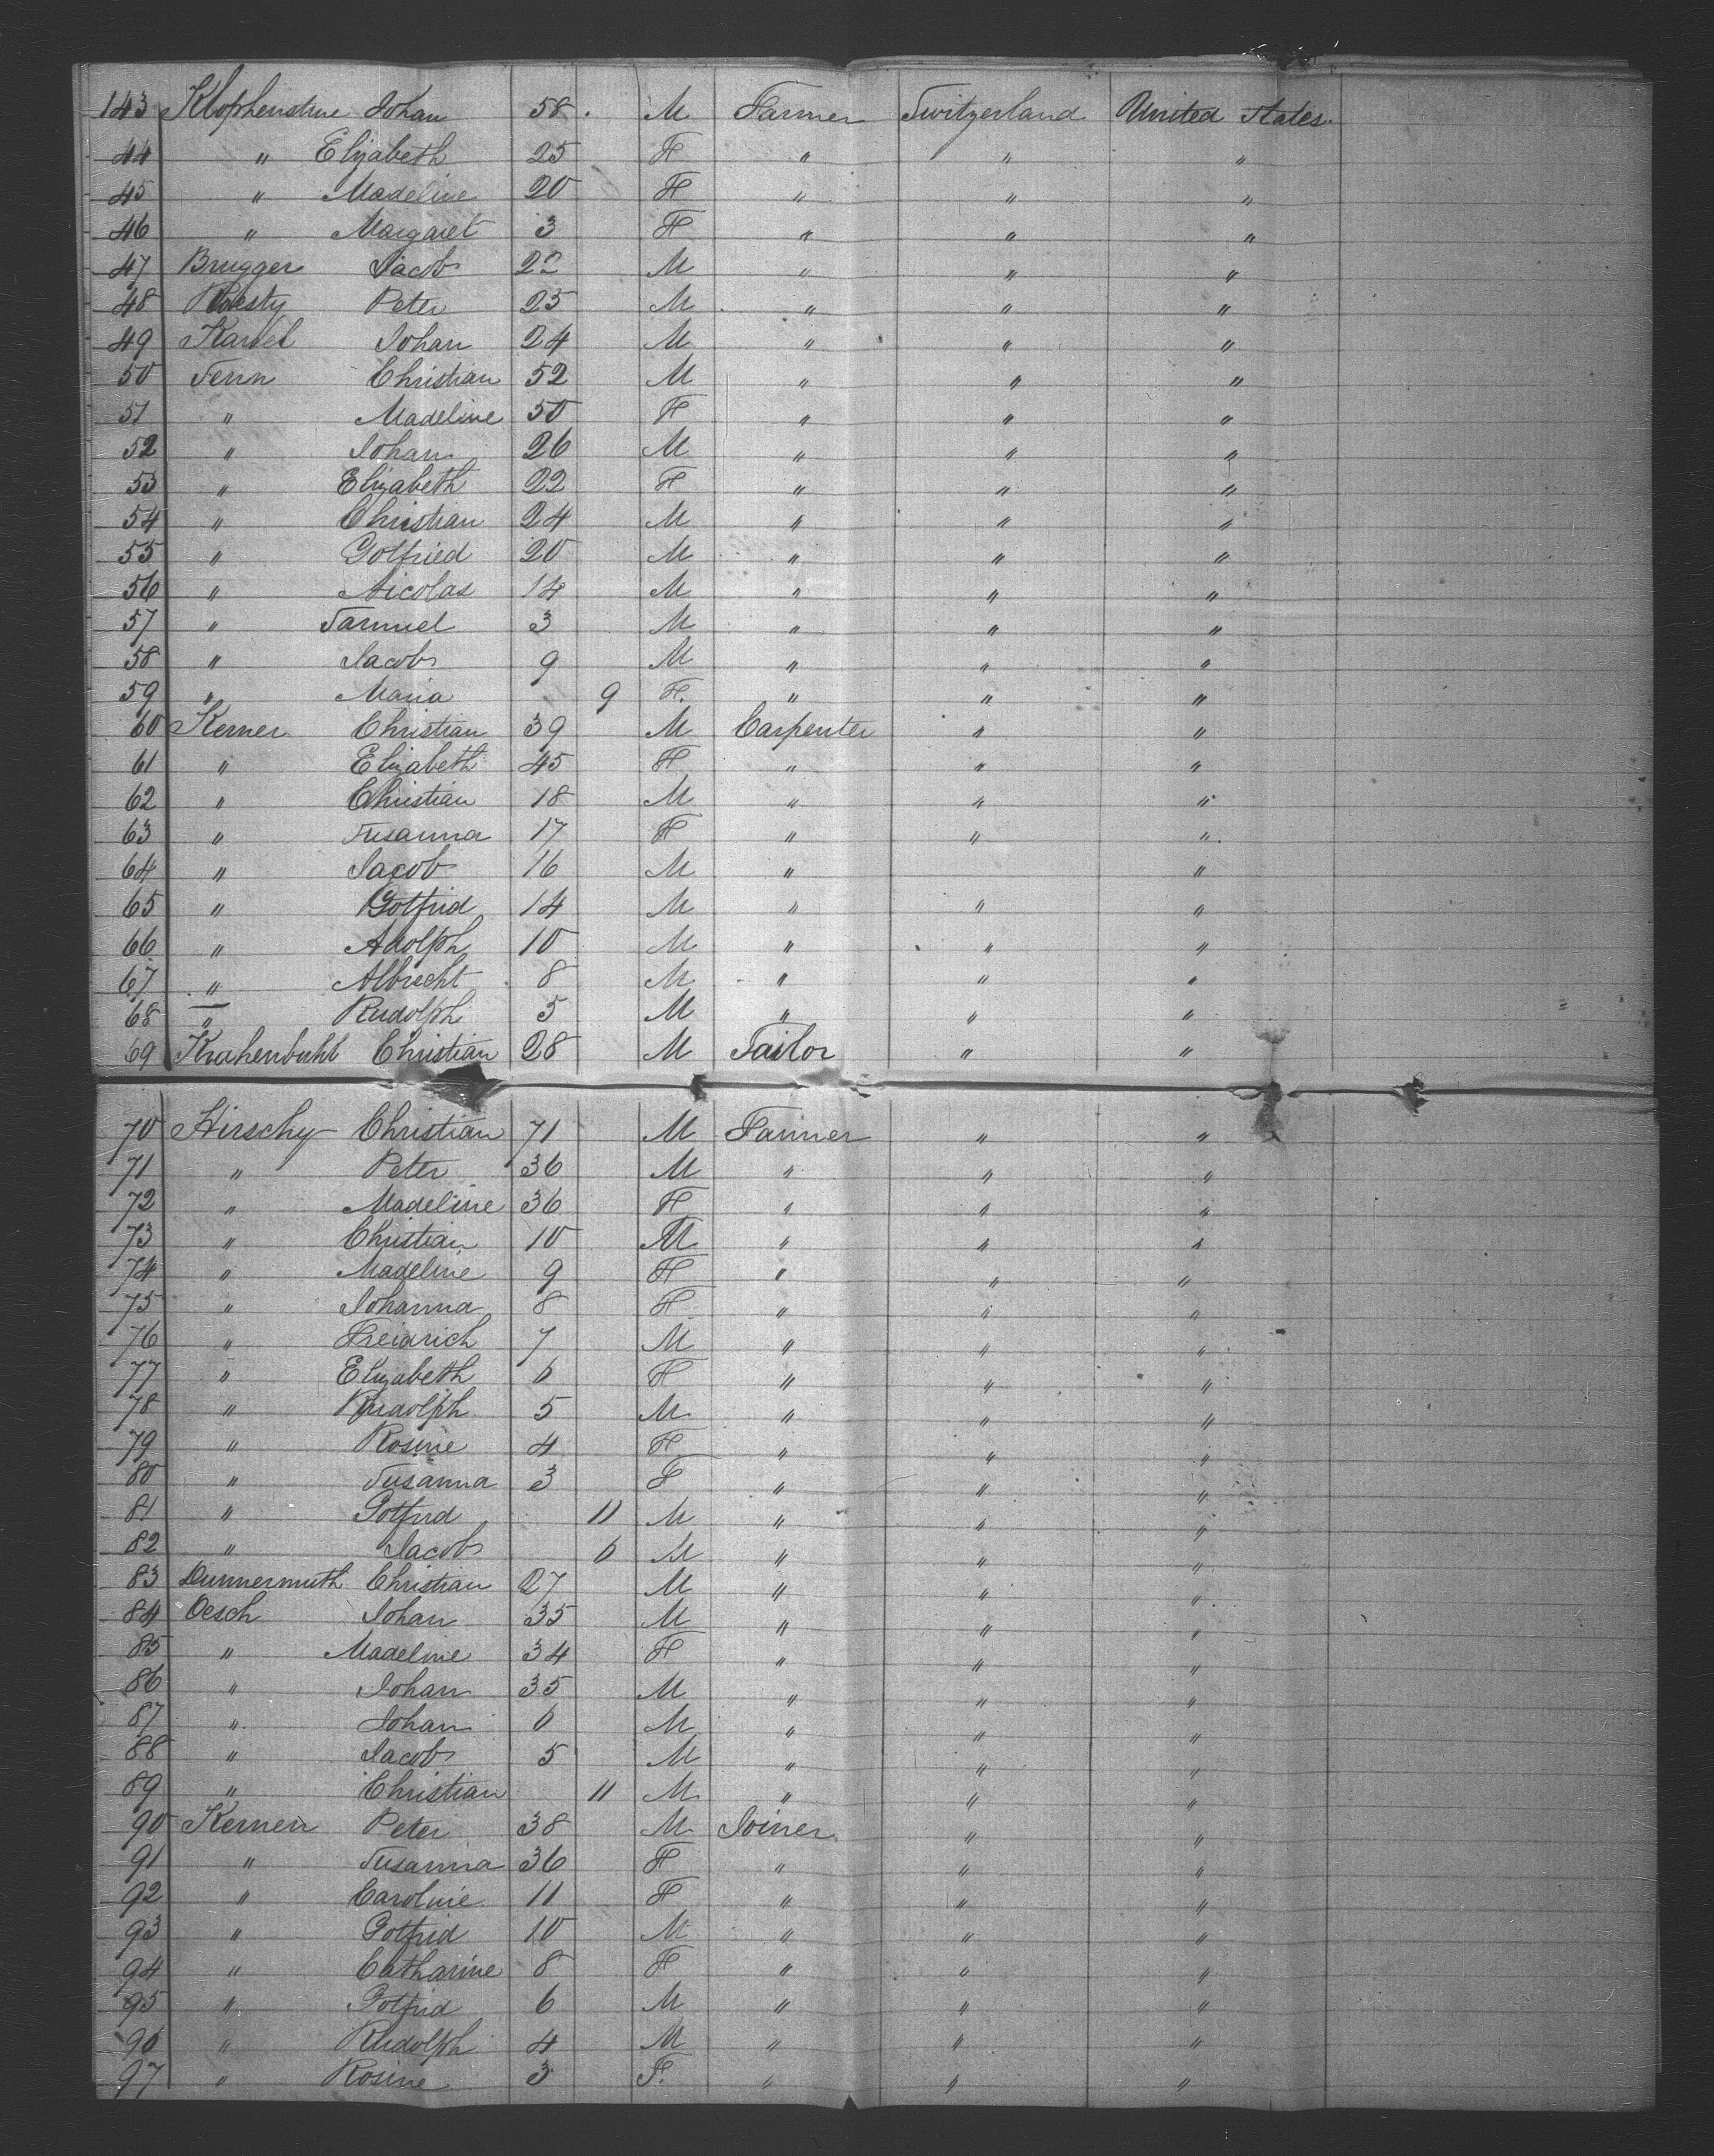 143 Klophenstine Johan 58 M Farmer Switzerland United States.
44 " Elizabeth 25 F " " "
45 " Madeline 20 F " " "
46 " Margaret 3 F " " "
47 Brugger Jacob 22 M " " "
48 Peter 25 M " " "
49 Johan 24 M " " "
50 Christian 52 M " " "
51 " Madeline 50 F " " "
52 " Johan 26 M " " "
53 " Elizabeth 22 F " " "
54 " Christian 24 M " " "
55 " Gotfried 20 M " " "
56 " Nicolas 14 M " " "
57 " Samuel 3 M " " "
58 " Jacob 9 M " " "
59 " Maria 9 F. " " "
60 Kerner Christian 39 M Carpenter " "
61 " Elizabeth 45 F " " "
62 " Christian 18 M " " "
63 " Susanna 17 F " " "
64 " Jacob 16 M " "
65 " Gotfrid 14 M " " "
66 " Adolph 10 M " " "
67 " Albrecht 8 M " " "
68 " Rudolph 5 M " " "
69 Krahenbuhl Christian 28 M Tailor " "
70 Hirschy Christian 71 M Farmer " "
71 " Peter 36 M " " "
72 " Madeline 36 F " " "
73 " Christian 10 M " " "
74 " Madeline 9 F " " "
75 " Johanna 8 F " " "
76 " Freidrich 7 M " " "
77 " Elizabeth 6 F " " "
78 " Rudolph 5 M " " "
79 " Rosine 4 F " " "
80 " Susanna 3 F " " "
81 " Gotfrid 11 M " " "
82 " Jacob 6 M " " "
83 Dummermuth Christian 27 M " " "
84 Oesch Johan 35 M " " "
85 " Madeline 34 F " " "
86 " Johan 35 M " " "
87 " Johan 6 M " " "
88 " Jacob 5 M " " "
89 " Christian 11 M " " "
90 Kernen Peter 38 M Joiner " "
91 " Susanna 36 F " " "
92 " Caroline 11 F " " "
93 " Gotfrid 10 M " " "
94 " Catharine 8 F " " "
95 " Gotfrid 6 M " " "
96 " Rudolph 4 M " " "
97 " Rosine 3 F. " " "